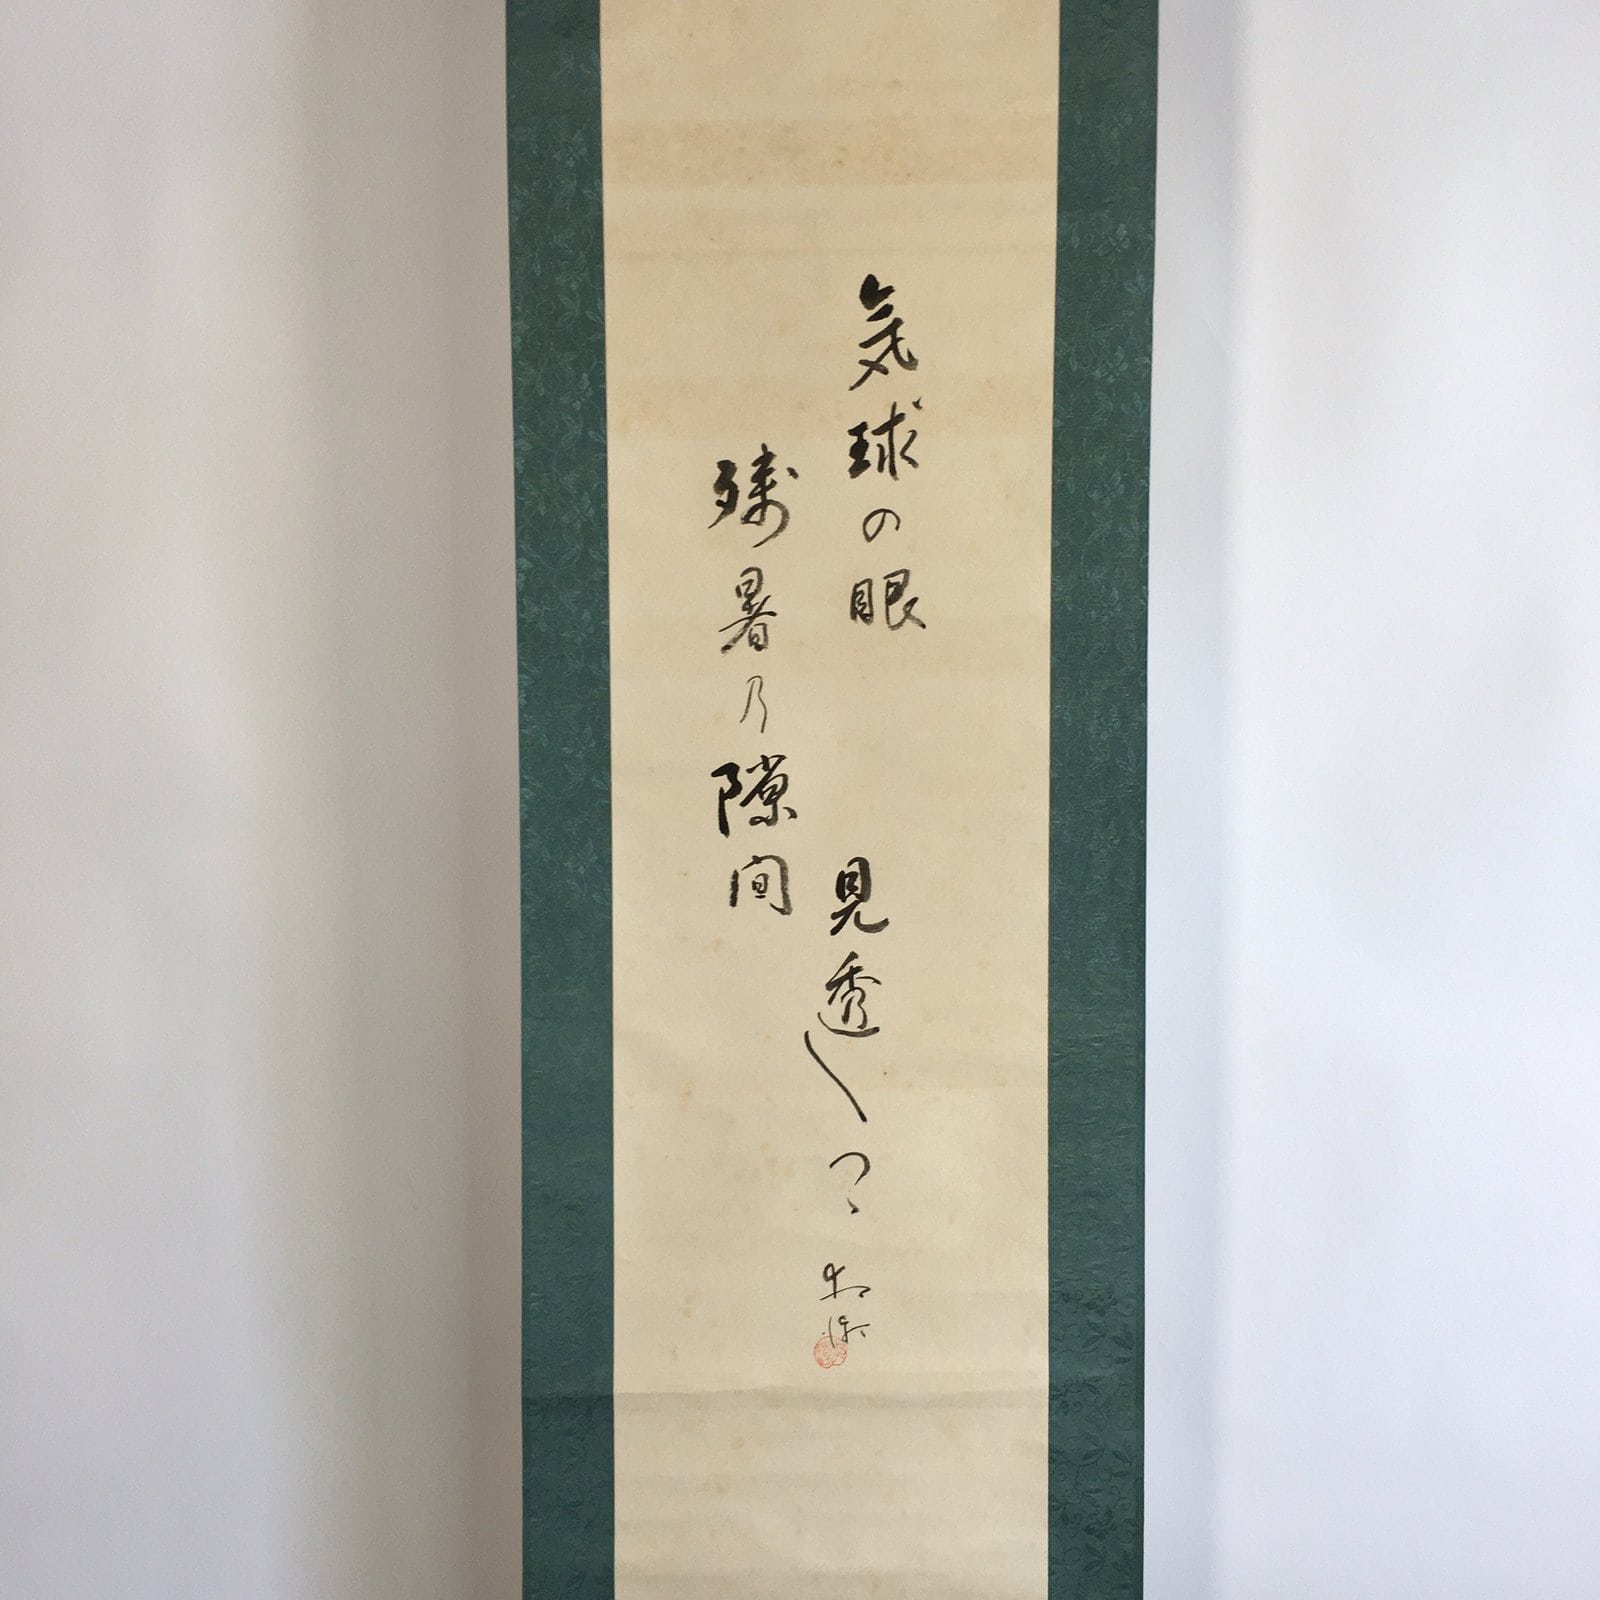 気球の眼
残暑乃隙間
見透しつゝ